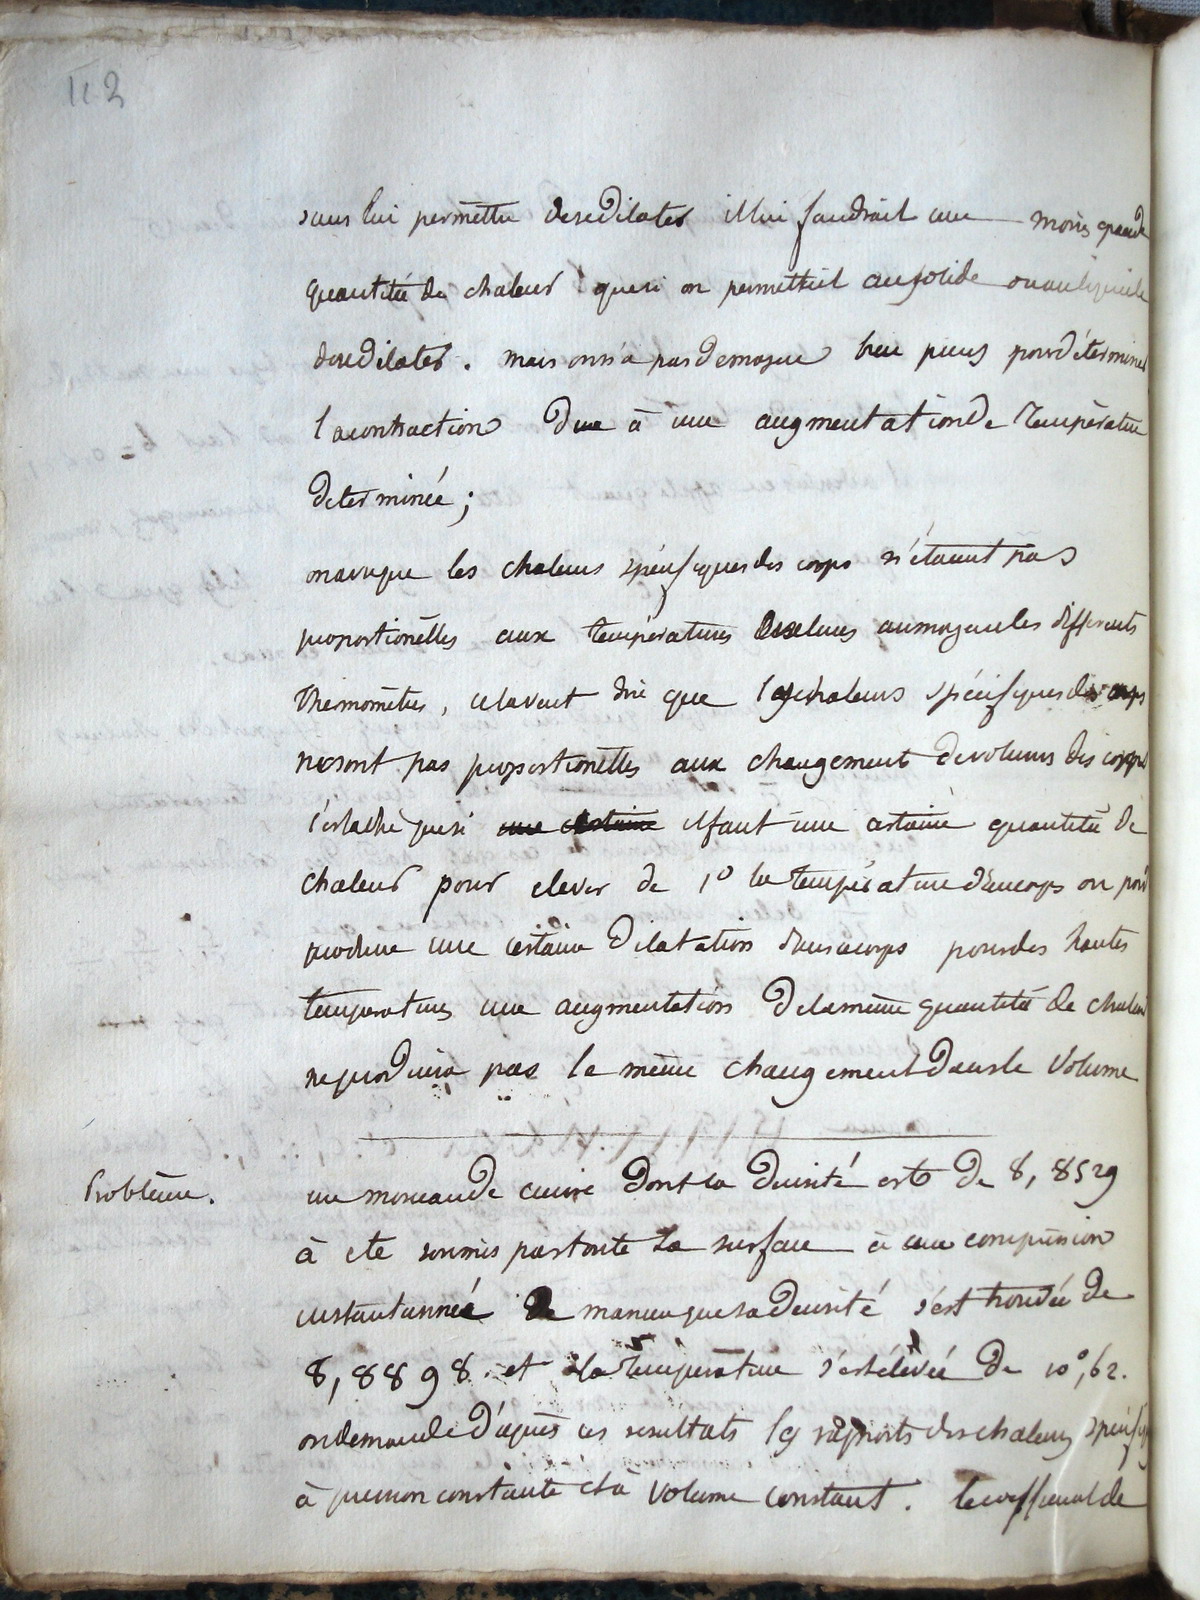 112
sans lui permettre de se dilater il lui faudrait une moins grande
quantité de chaleur que si on permettait au solide ou au liquide
de se dilater. mais on n'a pas de moyen bien precis pour déterminer
la contraction due à une augmentation de température
determinée ;
on a vu que les chaleurs spécifiques des corps n'étaient pas
proportionelles aux températures évaluées au moyen des différents
thermomètres, cela veut dire que les chaleurs spécifiques des corps
ne sont pas proportionelles aux changement de volumes des corps
c'est a dire que si une certaine il faut une certaine quantité de
chaleur pour elever de 1° la température d'un corps ou pour
produire une certaine dilatation dans ce corps pour des hautes
temperatures une augmentation de la même quantité de chaleur
ne produira pas le même changement dans le volume
Problème.
un morceau de cuivre dont la densité est de 8,8529
à été soumis par toute sa surface à une compression
instantannée de maniere que sa densité s'est trouvée de
8,8898. et la température s'est élevée de 10°,62.
on demande d'après ces resultats les rapports des chaleurs specifiq
à pression constante et à volume constant. le coefficient de